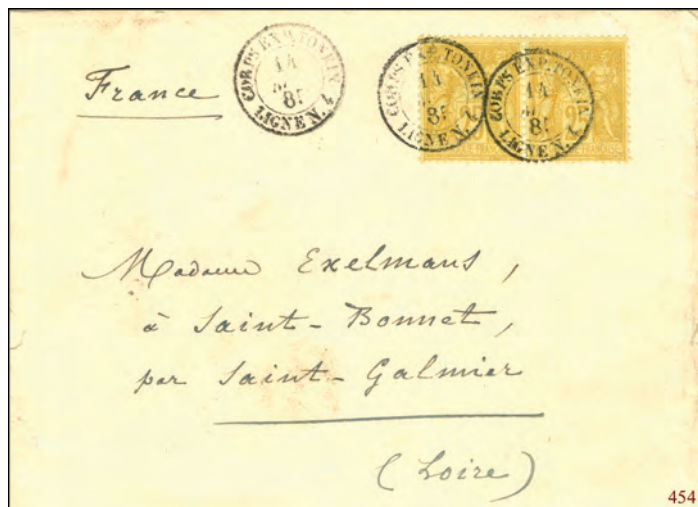 CORPS EXP. TONKIN
14
85
LIGNE N. 4
CORPS EXP. TONKIN
14
85
LIGNE N. 4
CORPS EXP. TONKIN
14
85
LIGNE N. 4
France
25
25
Madame Exelmans,
à Saint-Bonnet,
par Saint-Galmier
(Loire)
454